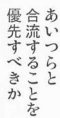 あいつらと
合流することを
優先すべきか